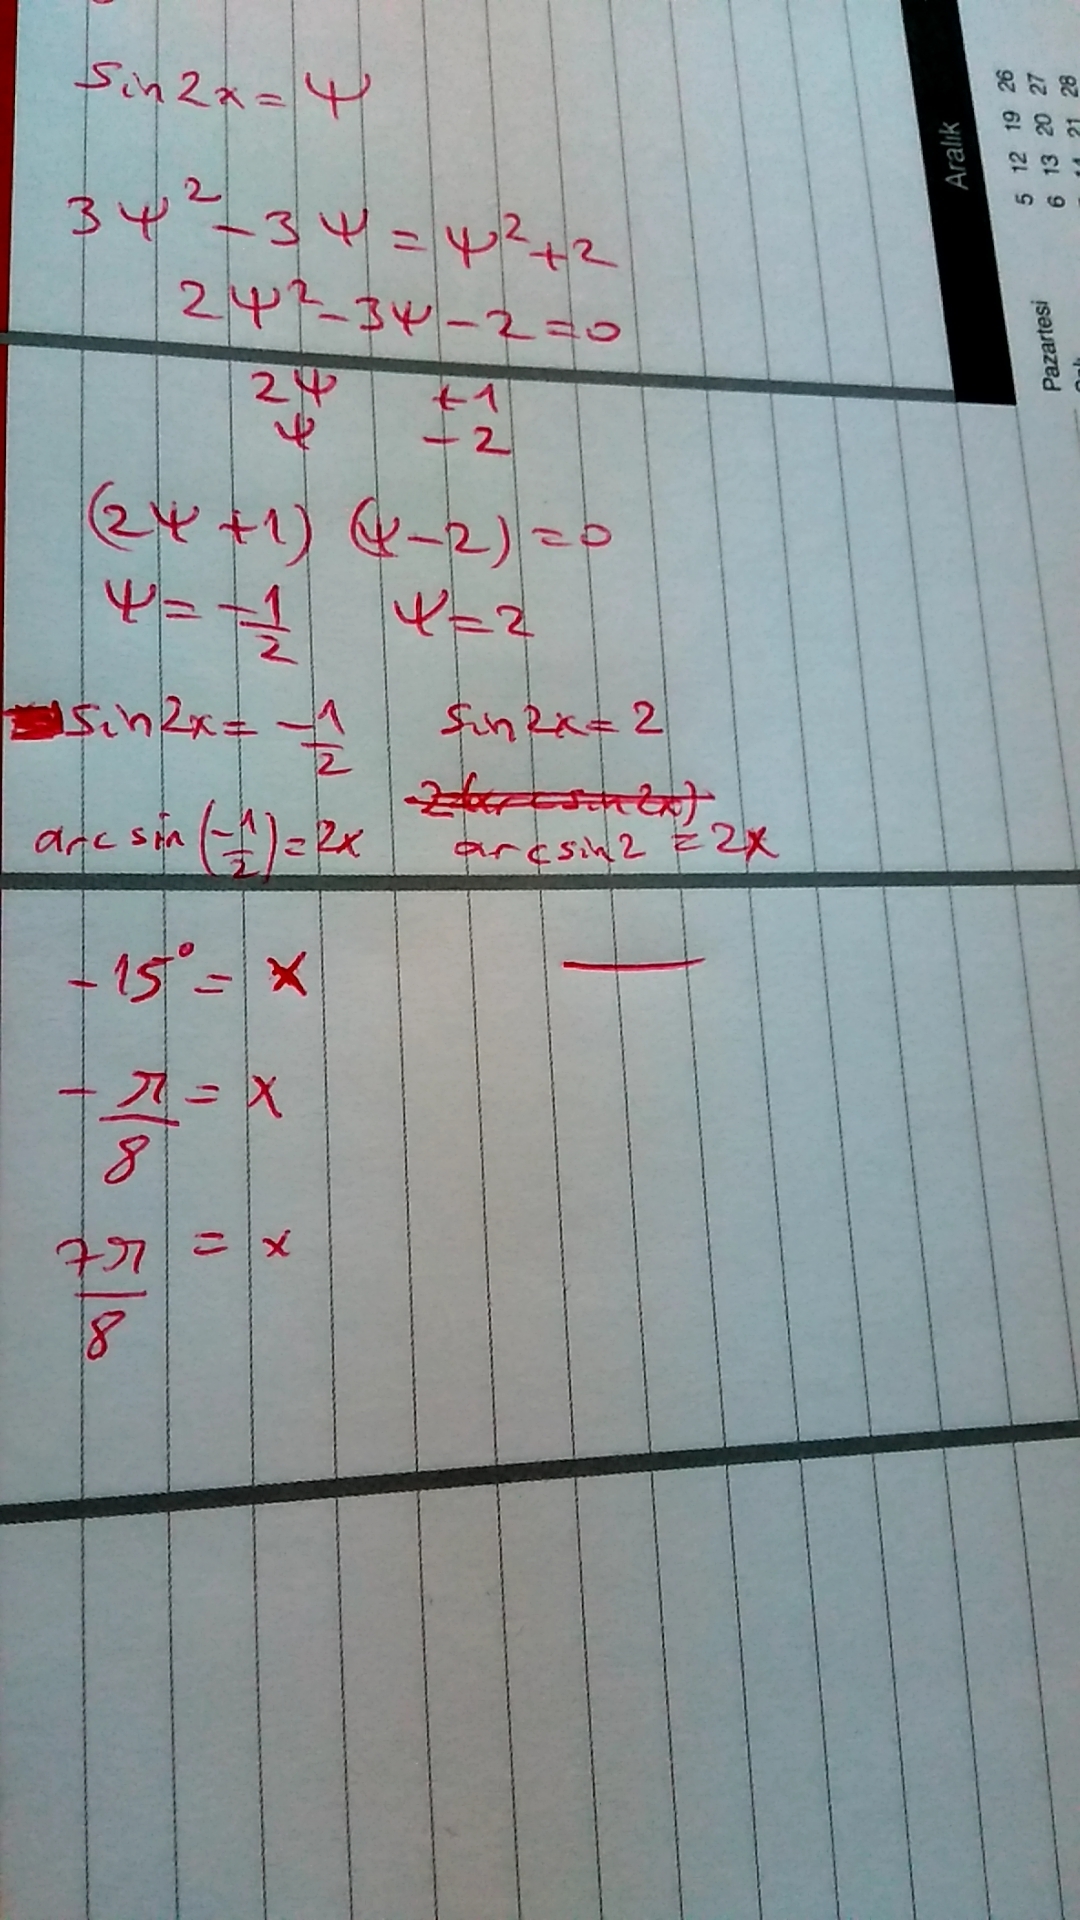 sin2x = ψ
3ψ² - 3ψ = ψ² + 2
2ψ² - 3ψ - 2 = 0
2ψ +1
ψ -2
(2ψ + 1) (ψ - 2) = 0
ψ = -1/2 ψ = 2
sin2x = -1/2 sin2x = 2
arcsin(-1/2) = 2x arcsin2 = 2x
-15° = x
-π/8 = x
7π/8 = x
Aralık
Pazartesi 5 12 19 26
6 13 20 27
21 28